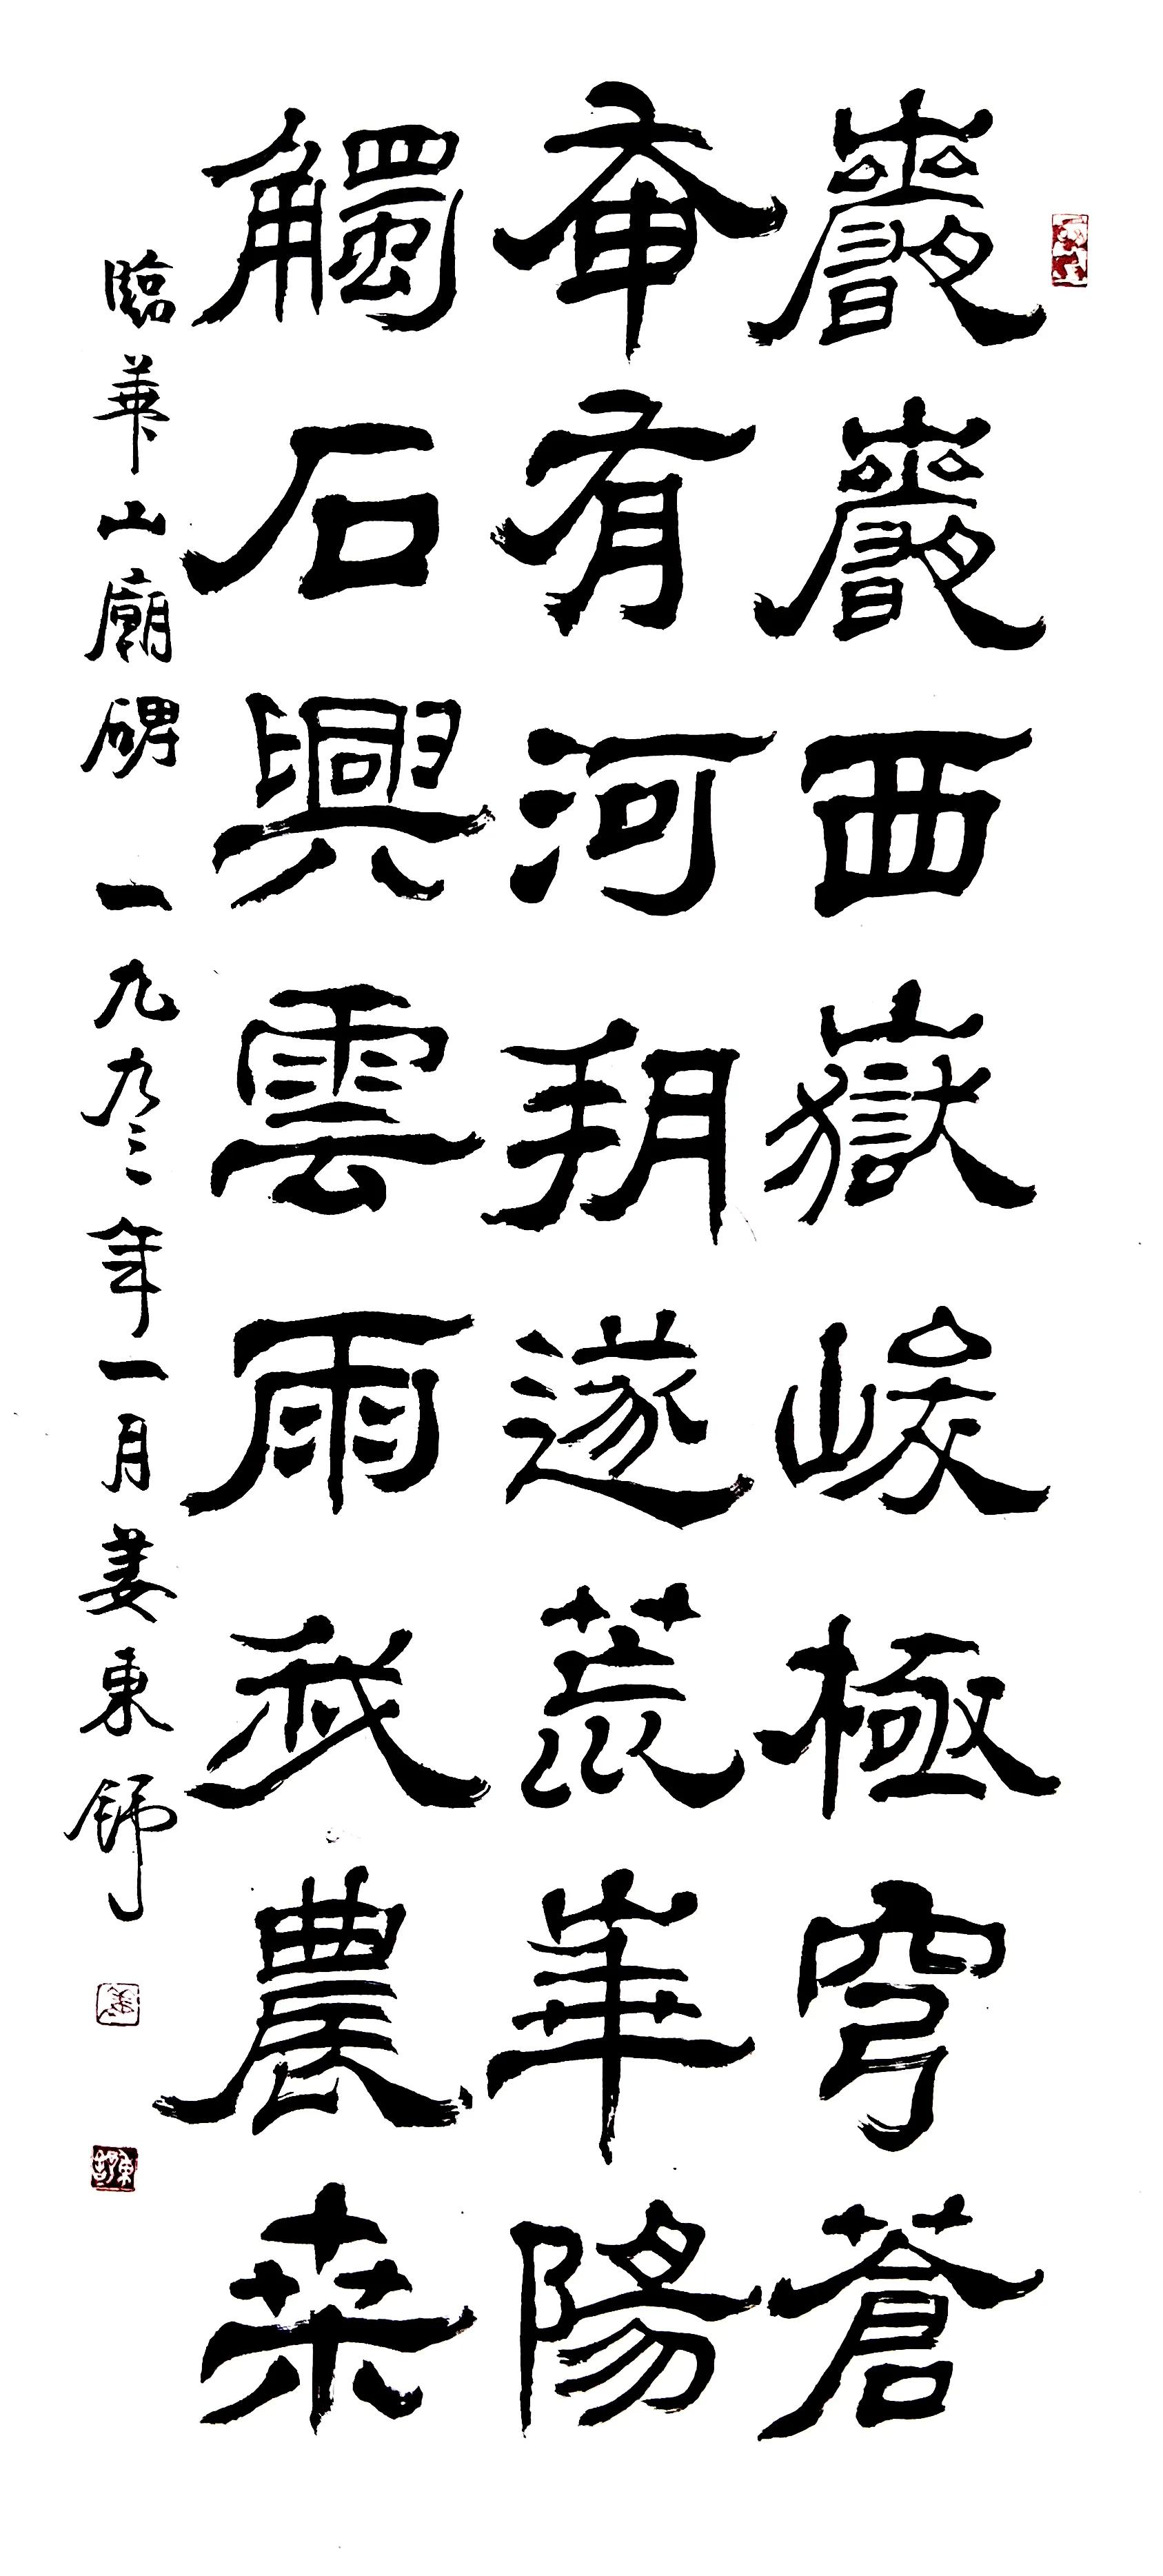 巖巖西嶽峻極穹蒼
奄有河朔遂荒崋陽
觸石興雲雨我農桒
臨華山廟碑 一九九三年一月姜東舒